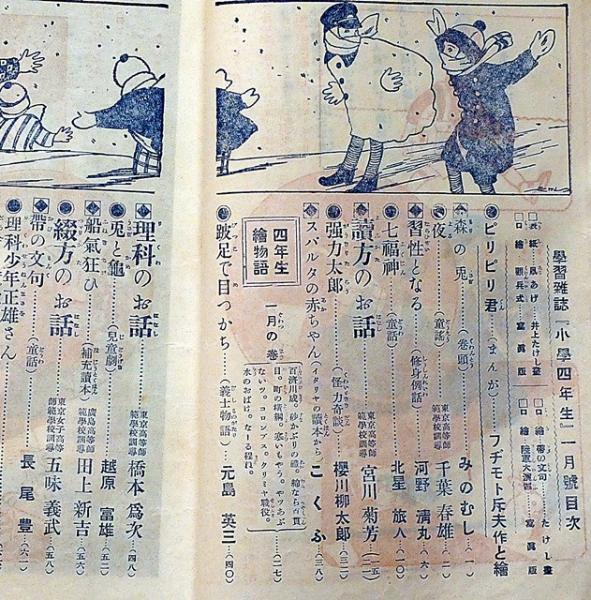 學習雜誌『小學四年生』一月號目次
□表紙…凧あげ…井上たけし畫
□口繪…觀兵式…寫眞版
□口繪…帶の文句…たけし畫
□口繪…陸軍大演習…寫眞版
ピリピリ君(まんが)フヂモト斥夫作と繪
森の兎(卷頭)みのむし…(一)
夜(童謠)東京高等師範學校訓導 千葉春雄…(二)
習性となる(修身例話)河野清丸…(六)
七福神(童話)北星旅人…(一〇)
讀方のお話 東京高等師範學校訓導 宮川菊芳…(二五)
強力太郎(怪力奇談)櫻川柳太郎…(三二)
スパルタの赤ちゃん(イタリヤの讀本から)こくふ…(三八)
四年生繪物語 一月の卷
百濟川成。砂かぶりの禮。繪なら百貫目。町の橫綱。寒いもやう。やツあぶないツ。コロンブス。クリミヤ戰役。水のおばけ。なーる程ね。
(一七)
跣足で目つかち(義士物語)元島英三…(四〇)
理科のお話 東京高等師範學校訓導 橋本爲次…(四八)
兎と龜(兒童劇)越原富雄…(五二)
船氣狂ひ(補充讀本)廣島高等師範學校訓導 田上新吉…(五六)
綴方のお話 東京女子高等師範學校訓導 五味義武…(五八)
帶の文句(童話)長尾豐…(六一)
理科少年正雄さん